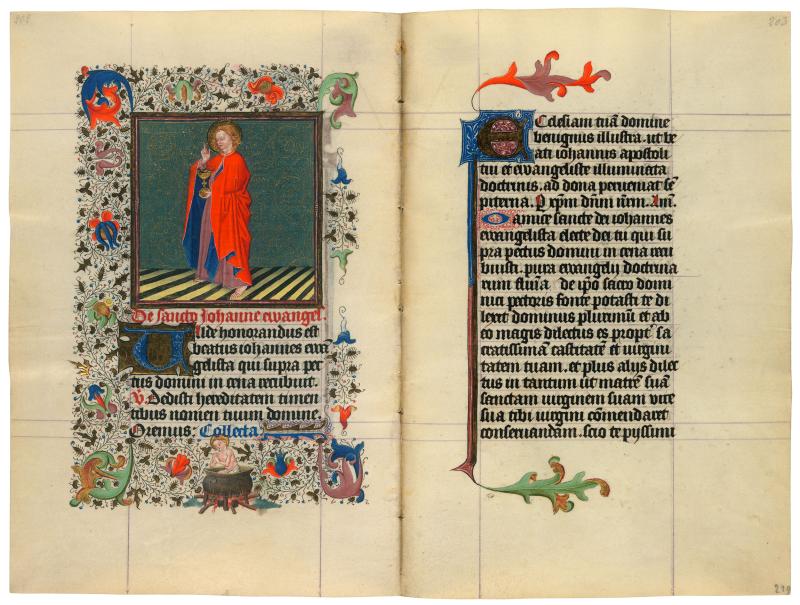 202
De sancto Johanne ewangel.
Ualde honorandus est
beatus iohannes ewa
gelista qui supra pec
tus domini in cena recubuit.
V. Dedisti hereditatem timen
tibus nomen tuum domine.
Oremus: Collecta
203
Ecclesiam tuā domine
benignus illustra. ut be
ati iohannis apostoli
tui et ewangeliste illuminata
doctrinis. ad dona perveniat sē
piterna. P xpm dn̄m nrm. Am̄.
O amice sancte dei iohannes
ewangelista electe dei tu qui su
pra pectus domini in cena recu
buisti. pura ewangelij doctrina
rum fluēta de ip̄o sacro domi
nici pectoris fonte potasti te di
lexit dominus plurimū et ab
eo magis dilectus es propt' sa
cratissimā castitatē et virgini
tatem tuam. et plus alijs dilec
tus in tantum ut matrē suā
sanctam virginem suam vice
sua tibi virgini cōmendaret
conservandam. scio te pyssimi